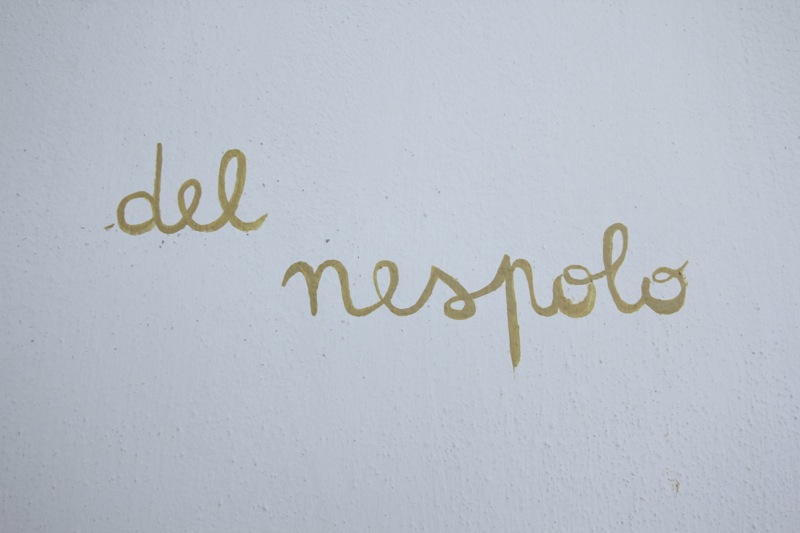 del
nespolo